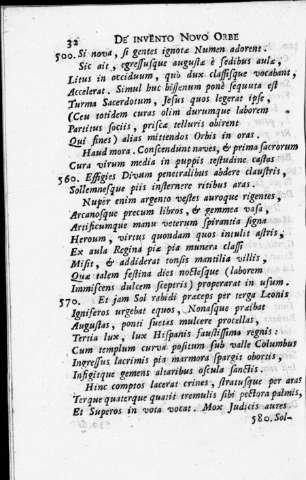 32 DE INVENTO NOVO ORBE
500. Si nova, si gentes ignotæ Numen adorent.
Sic ait, egressusque augustæ è sedibus aulæ,
Litus in occiduum, quò dux classisque vocabant,
Accelerat. Simul huc bissenum ponè sequuta est
Turma Sacerdotum, Jesus quos legerat ipse,
(Ceu totidem curas olim durumque laborem
Partitus sociis, priscæ telluris obirent
Qui fines) alias mittendos Orbis in oras.
Haud mora. Conscendunt naves, & prima sacrorum
Cura virum media in puppis testudine castas
560. Effigies Divûm penetralibus abdere claustris,
Sollemnesque piis insternere ritibus aras.
Nuper enim argento vestes auroque rigentes,
Arcanosque precum libros, & gemmea vasa,
Artificumque manu veterum spirantia signa
Heroum, virtus quondam quos intulit astris,
Ex aula Regina piæ pia munera classi
Misit, & addiderat tonsis mantilia villis,
Quæ talem festina dies noctesque (laborem
Immiscens dulcem sceptris) properarat in usum.
570. Et jam Sol rabidi præceps per terga Leonis
Igniferos urgebat equos, Nonasque præibat
Augustas, ponti suetas mulcere procellas,
Tertia lux, lux Hispanis faustissima regnis:
Cum templum curvâ positum sub valle Columbus
Ingressus lacrimis pia marmora spargit obortis,
Infigitque gemens altaribus oscula sanctis.
Hinc comptos lacerat crines, stratusque per aras
Terque quaterque quatit tremulis sibi pectora palmis,
Et Superos in vota vocat. Mox Judicis aures
580. Sol-